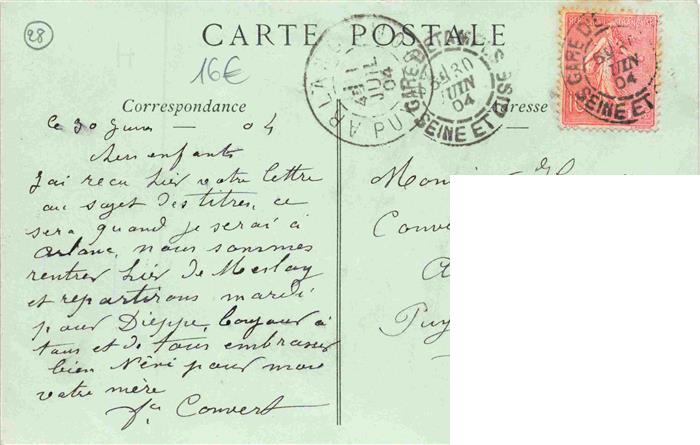 28
CARTE POSTALE
16€
Correspondance
Adresse
ARLANC
4E
1
JUIL
04
GARE DE
30
JUIN
04
SEINE ET OISE
GARE DE
JUIN
04
SEINE ET
le 30 Juin 04
chers enfants
J'ai recu hier votre lettre
au sujet des titres, ce
sera quand je serai à
Arlanc, nous sommes
rentrer hier de Meslay
et repartirons mardi
pour Dieppe, bonjour à
tous et de tous embrasser
bien Néné pour moi
votre mère
Convert
Monsieur
Conver
A
Puy